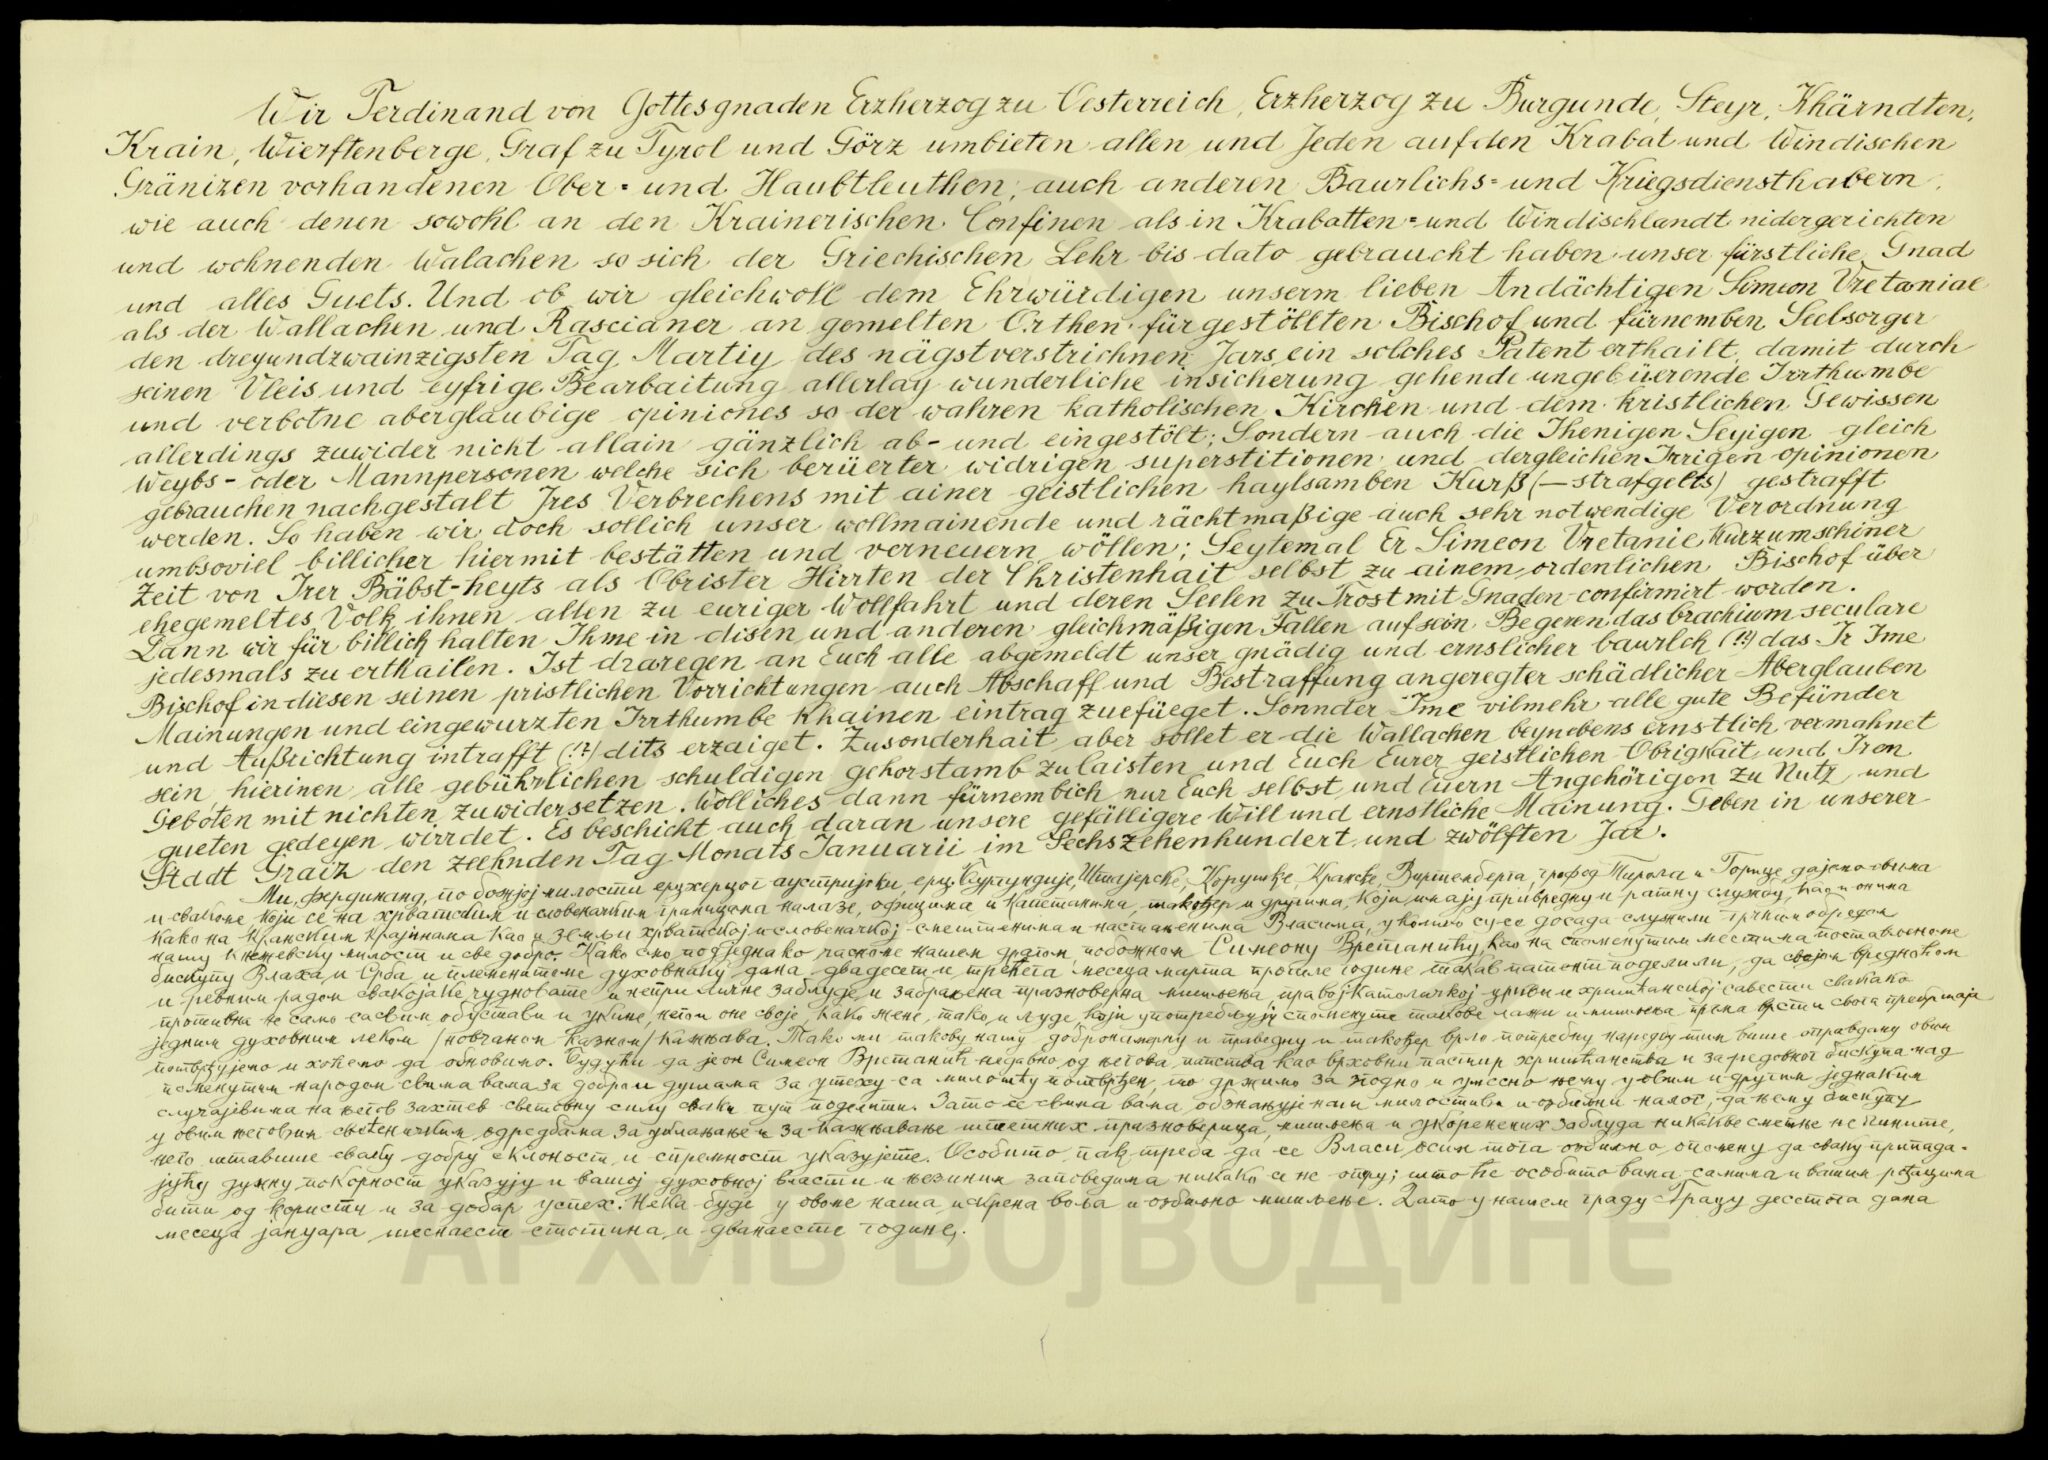 Wir Ferdinand von Gottesgnaden Erzherzog zu Oesterreich, Erzherzog zu Burgunde, Steyr, Khärndten,
Krain, Wierftenberge, Graf zu Tyrol und Görz umbieten allen und Jeden auf den Krabat und Windischen
Gränizen vorhandenen Ober- und Haubtleuthen, auch anderen Baurlichs- und Kriegsdiensthabern,
wie auch denen sowohl an den Krainerischen Confinen als in Krabatten- und Windischlandt nidergerichten
und wohnenden Walachen so sich der Griechischen Lehr bis dato gebraucht haben unser fürstliche Gnad
und alles Guets. Und ob wir gleichwoll dem Ehrwürdigen unserm lieben Andächtigen Simeon Vretaniae
als der Wallachen und Rascianer an gemelten Orthen fürgestöllten Bischof und fürnemben Seelsorger
den dreyundzwainzigsten Tag Martiy des nägstverstrichnen Jars ein solches Patent erthailt, damit durch
seinen Vleis und eyfrige Bearbaitung allerlay wunderliche insicherung gehende ungebüerende Irrthumbe
und verbotne aberglaubige opiniones so der wahren katholischen Kirchen und dem kristlichen Gewissen
allerdings zuwider nicht allain gänzlich ab- und eingestölt; Sondern auch die Jhenigen Seyigen gleich
Weybs- oder Mannpersonen welche sich berüerter widrigen superstitionen und dergleichen Irrigen opinionen
gebrauchen nachgestalt Jres Verbrechens mit ainer geistlichen haylsamben Kurß (– strafgelts) gestrafft
werden. So haben wir doch sollich unser wollmainende und rächtmaßige auch sehr notwendige Verordnung
umbsoviel billicher hiermit bestätten und verneuern wöllen; Seytemal Er Simeon Vretanie Kurzumschiner
Zeit von Irer Bäbst-heyts als Obrister Hirrten der Christenhait selbst zu ainem ordentlichen Bischof über
ehegemeltes Volk ihnen allen zu euriger Wollfahrt und deren Seelen zu Trost mit Gnaden confirmirt worden.
Dann wir für billich halten Ihme in disen und anderen gleichmäßigen Fällen auf sein Begeren das brachium seculare
jedesmals zu erthailen. Ist drawegen an Euch alle abgemeldt unser gnädig und ernslicher baurlch (!?) das Ir Ime
Bischof in diesen seinen pristlichen Vorrichtungen auch Abschaff und Bestraffung angeregter schädlicher Aberglauben
Mainungen und eingewurzten Irrthumbe khainen eintrag zuefüeget. Sonnder Ime vilmehr alle gute Befünder
und Außrichtung intrafft (!?) dits erzaiget. Zusonderhait aber sollet er die Wallachen beynebens ernstlich vermahnet
sein, hierinen alle gebührlichen schuldigen gehorstamb zu laisten und Euch Eurer geistlichen Obrigkait und Iren
Geboten mit nichten zuwidersetzen. Wolliches dann fürnembich nur Euch selbst und Euern Angehörigen zu Nutz und
gueten gedeyen wirrdet. Es beschicht auch daran unsere gefälligere Will und ernstliche Mainung. Geben in unserer
Stadt Graiz den zeehnden Tag Monats Januarii im Sechszehenhundert und zwölften Jar.
Ми, Фердинанд, по божјој милости ерцхерцог аустријски, ерц. Бургундије, Штајерске, Корушке, Крањске, Виртемберга, гроф од Тирола и Горице дајемо свима
и свакоме који се на хрватским и словеначким границама налазе, официма и капетанима, такођер и другима, који имају привредну и ратну службу, као и онима
како на Крањским крајинама као и земљи хрватској и словеначкој смештенима и настањенима Власима, уколико су се досада служили грчким обредом
нашу кнежевску милост и све добро. Како смо подједнако часноме нашем драгом побожном Симеону Вретанићу, као на споменутим местима постављеноме
бискупу Влаха и Срба и племенитоме духовнику дана двадесет и трећега месеца марта прошле године такав патент поделили, да својом вредноћом
и ревним радом свакојаке чудновате и неприличне заблуде и забрањена празноверна мишљења, правој католичкој цркви и хришћанској савести свакако
противна не само сасвим обустави и укине, него и оне своје, како жене, тако и људе, који употребљују споменуте такове лажи и мишљења, према врсти свога преступаја
једним духовним леком /новчаном казном/ кажњава. Тако ми такову нашу добронамерну и праведну и такођер врло потребну наредбу тим више оправдану овим
потврђујемо и хоћемо да обновимо. Будући да је он Симеон Вретанић недавно од његова папства као врховни пастир хришћанства и за редовног бискупа над
поменутим народом свима вама за добро и душама за утеху са милошћу потврђен, то држимо за згодно и умесно њему у овим и другим једнаким
случајевима на његов захтев световну силу сваки пут поделити. Зато се свима вама обзнањује наш милостиви и озбиљни налог, да њему бискупу
у овим његовим свећеничким одредбама за уклањање и за кажњавање штетних празноверица, мишљења и укорењених заблуда никакве сметње не чините,
него штавише сваку добру склоност и спремност указујете. Особито пак треба да се Власи осим тога озбиљно опомену да сваку припада-
јућу дужну покорност указују и вашој духовној власти и њезиним заповедима никако се не опиру; што ће особито вама самима и вашим рођацима
бити од користи и за добар успех. Нека буде у овоме наша искрена воља и озбиљно мишљење. Дато у нашем граду Грацу десетога дана
месеца јануара шеснаест стотина и дванаесте године.
АРХИВ ВОЈВОДИНЕ